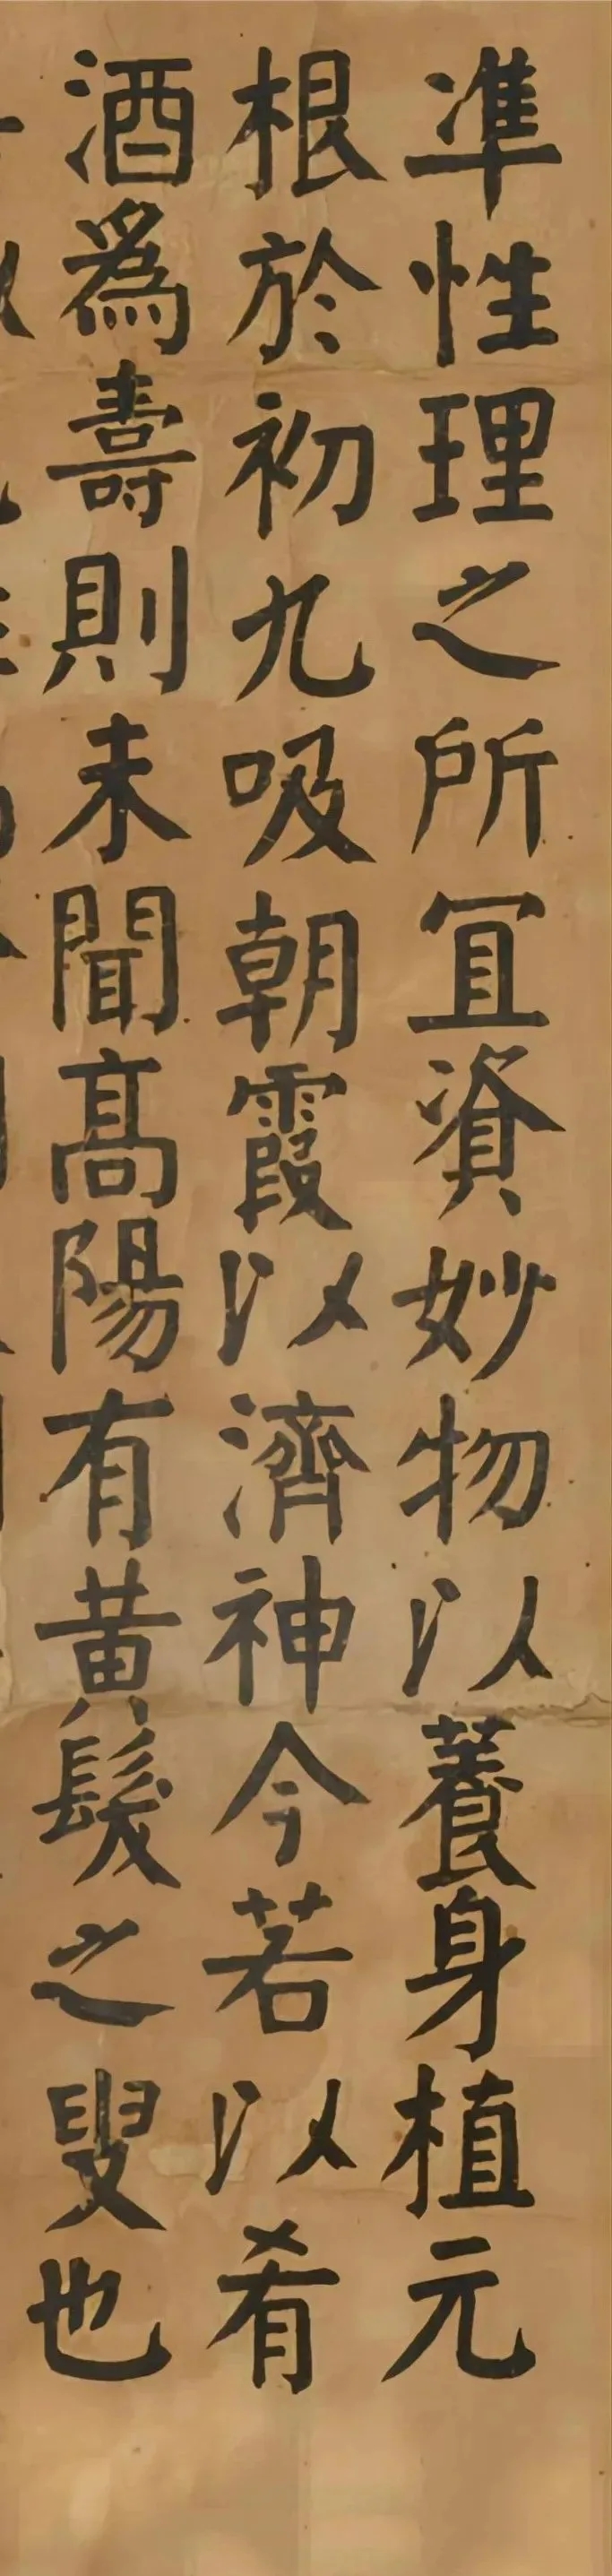 準性理之所宜資妙物以養身植元
根於初九吸朝霞以濟神今若以肴
酒為壽則未聞高陽有黃髮之叟也